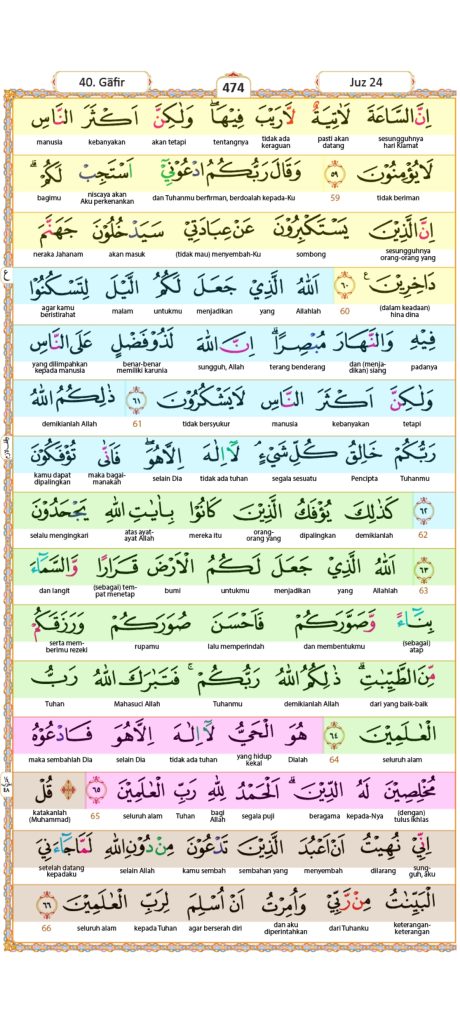 40. Gāfir 474 Juz 24
اِنَّ السَّاعَةَ لَاٰتِيَةٌ لَّا رَيْبَ فِيْهَا ۖ وَلٰكِنَّ اَكْثَرَ النَّاسِ
sesungguhnya hari Kiamat pasti akan datang tidak ada keraguan tentangnya akan tetapi kebanyakan manusia
لَا يُؤْمِنُوْنَ ٥٩ وَقَالَ رَبُّكُمُ ادْعُوْنِيْٓ اَسْتَجِبْ لَكُمْ ۗ
tidak beriman 59 dan Tuhanmu berfirman, berdoalah kepada-Ku niscaya akan Aku perkenankan bagimu
اِنَّ الَّذِيْنَ يَسْتَكْبِرُوْنَ عَنْ عِبَادَتِيْ سَيَدْخُلُوْنَ جَهَنَّمَ
sesungguhnya orang-orang yang sombong (tidak mau) menyembah-Ku akan masuk neraka Jahanam
دَاخِرِيْنَ ࣖ ٦٠ اَللّٰهُ الَّذِيْ جَعَلَ لَكُمُ الَّيْلَ لِتَسْكُنُوْا
(dalam keadaan) hina dina 60 Allahlah yang menjadikan untukmu malam agar kamu beristirahat
فِيْهِ وَالنَّهَارَ مُبْصِرًا ۗ اِنَّ اللّٰهَ لَذُوْ فَضْلٍ عَلَى النَّاسِ
padanya dan (menjadikan) siang terang benderang sungguh, Allah benar-benar memiliki karunia yang dilimpahkan kepada manusia
وَلٰكِنَّ اَكْثَرَ النَّاسِ لَا يَشْكُرُوْنَ ٦١ ذٰلِكُمُ اللّٰهُ
tetapi kebanyakan manusia tidak bersyukur 61 demikianlah Allah
رَبُّكُمْ خَالِقُ كُلِّ شَيْءٍ ۘ لَآ اِلٰهَ اِلَّا هُوَ ۖ فَاَنّٰى تُؤْفَكُوْنَ
Tuhanmu Pencipta segala sesuatu tidak ada tuhan selain Dia maka bagaimanakah kamu dapat dipalingkan
٦٢ كَذٰلِكَ يُؤْفَكُ الَّذِيْنَ كَانُوْا بِاٰيٰتِ اللّٰهِ يَجْحَدُوْنَ
62 demikianlah dipalingkan orang-orang yang mereka itu atas ayat-ayat Allah selalu mengingkari
٦٣ اَللّٰهُ الَّذِيْ جَعَلَ لَكُمُ الْاَرْضَ قَرَارًا وَّالسَّمَاۤءَ
63 Allahlah yang menjadikan untukmu bumi (sebagai) tempat menetap dan langit
بِنَاۤءً وَّصَوَّرَكُمْ فَاَحْسَنَ صُوَرَكُمْ وَرَزَقَكُمْ
(sebagai) atap dan membentukmu lalu memperindah rupamu serta memberimu rezeki
مِّنَ الطَّيِّبٰتِ ۗ ذٰلِكُمُ اللّٰهُ رَبُّكُمْ ۚ فَتَبٰرَكَ اللّٰهُ رَبُّ
dari yang baik-baik demikianlah Allah Tuhanmu Mahasuci Allah Tuhan
الْعٰلَمِيْنَ ٦٤ هُوَ الْحَيُّ لَآ اِلٰهَ اِلَّا هُوَ فَادْعُوْهُ
seluruh alam 64 Dialah yang hidup kekal tidak ada tuhan selain Dia maka sembahlah Dia
مُخْلِصِيْنَ لَهُ الدِّيْنَ ۗ اَلْحَمْدُ لِلّٰهِ رَبِّ الْعٰلَمِيْنَ ٦٥ ۞ قُلْ
(dengan) tulus ikhlas kepada-Nya beragama segala puji bagi Allah Tuhan seluruh alam 65 katakanlah (Muhammad)
اِنِّيْ نُهِيْتُ اَنْ اَعْبُدَ الَّذِيْنَ تَدْعُوْنَ مِنْ دُوْنِ اللّٰهِ لَمَّا جَاۤءَنِيَ
sungguh, aku dilarang menyembah sembahan yang kamu sembah selain Allah setelah datang kepadaku
الْبَيِّنٰتُ مِنْ رَّبِّيْ وَاُمِرْتُ اَنْ اُسْلِمَ لِرَبِّ الْعٰلَمِيْنَ ٦٦
keterangan-keterangan dari Tuhanku dan aku diperintahkan agar berserah diri kepada Tuhan seluruh alam 66